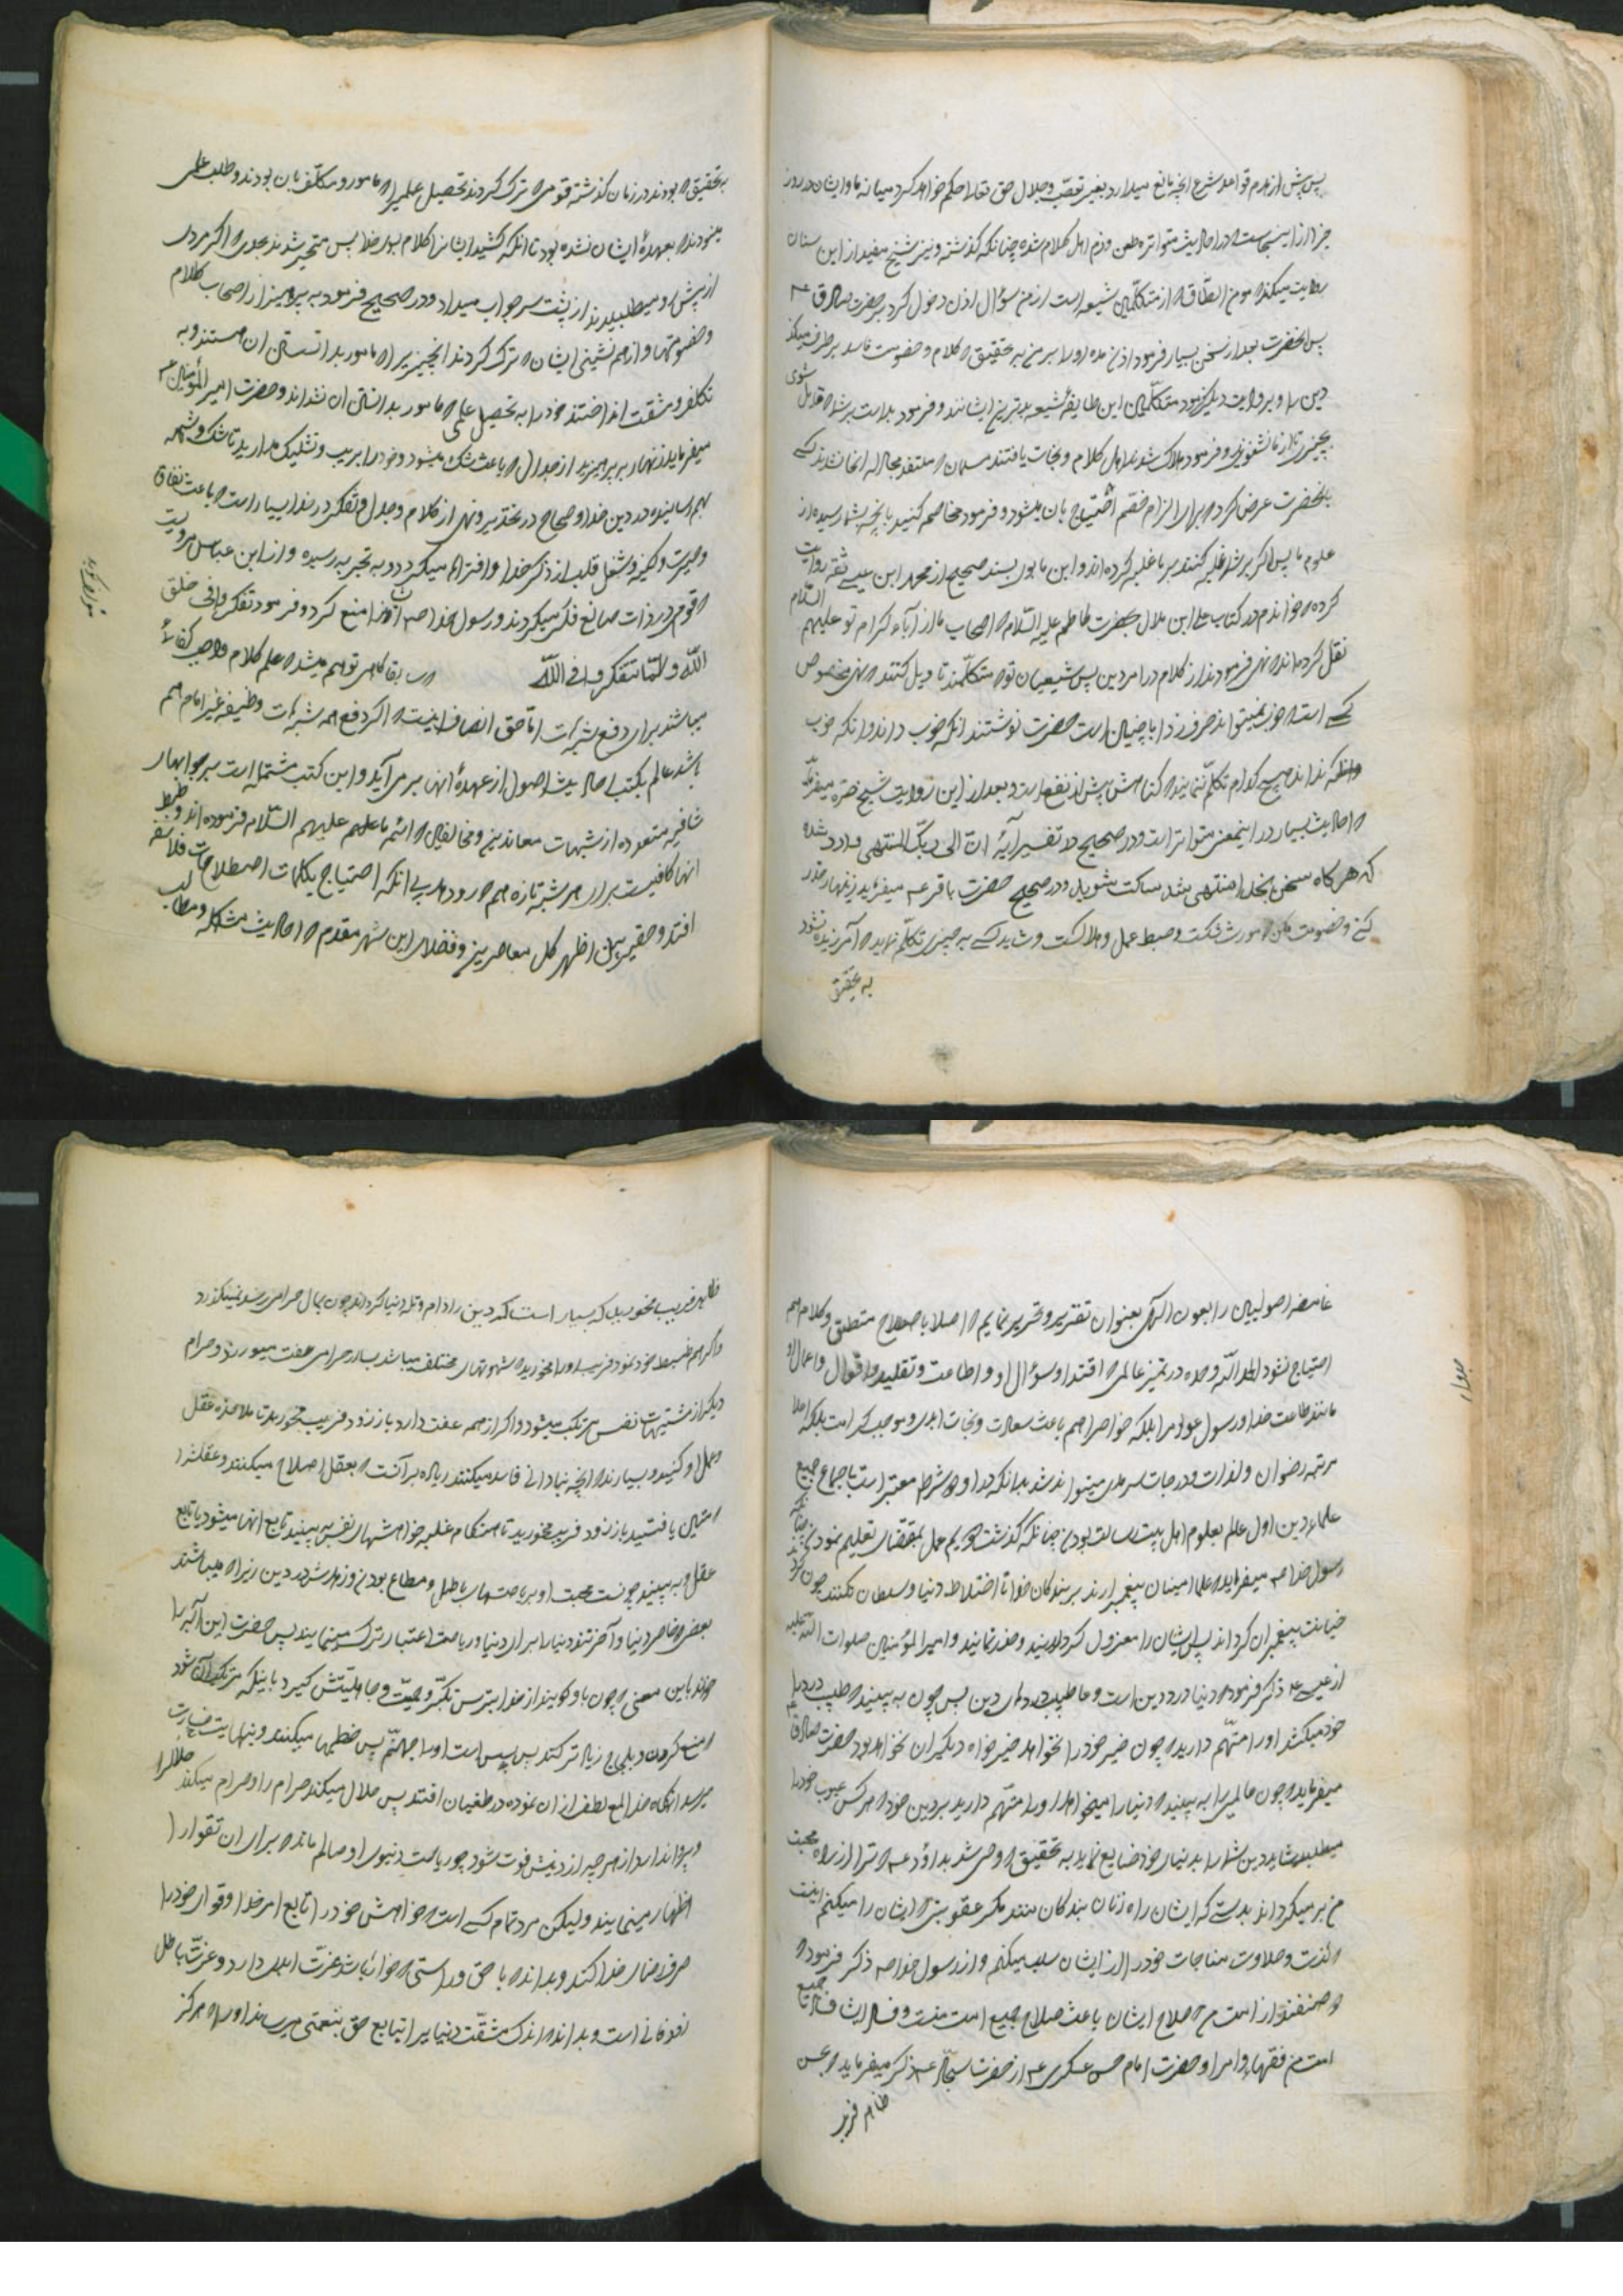 پس پیش از مردم قواعد شرع آنچه مانع میدارد بغیر تعصب و جلال حق تعالی حکم خواهد کرد میانه ما و ایشان در روز
جزا از اینجاست که در احادیث متواتره طعن و ذم اهل کلام شده چنانکه گذشته و نیز شیخ مفید از ابن سنان
روایت میکند که مومن الطاق که از متکلمین شیعه است از من سؤال اذن دخول کرد بر حضرت صادق ع
پس آنحضرت بعد از سخن بسیار فرمود اذن مده او را بر من به تحقیق که کلام و خصومت فاسد بر طرف میکند
دین را و بروایت دیگر فرمود متکلمین این طایفه شیعه بدترین ایشانند و فرمود بد است بر شما که قایل شوی
بچیزی که از ما نشنوی و فرمود هلاک شدند اهل کلام و نجات یافتند مسلمان که معتقد مجادله انها نشدند کسی
بآنحضرت عرض کرد که برای الزام خصم احتیاج بان میشود و فرمود مخاصم کنید بآنچه بشما رسیده از
علوم ما پس اگر بر شما غلبه کنند بر ما غلبه کرده اند و ابن بابویه بسند صحیح از محمد ابن عیسی ثقه روایت
کرده که خواندم در کتاب علی ابن هلال بحضرت کاظم علیه السلام که اصحاب ما از آباء کرام تو علیهم السلام
نقل کرده اند که نهی فرمودند از کلام در امر دین پس شیعیان تو که متکلمند تاویل کنند که نهی مخصوص
کسی است که خوب نمیتواند حرف زد ایا چنین است حضرت نوشتند آنکه خوب داند و آنکه خوب
نداند هیچ کدام تکلم ننمایند که گناهش پیش از نفع است و بعد از این روایت شیخ
که احادیث بسیار در اینمعنی متواتر است و در صحیح در تفسیر آیۀ انّ الی ربّک المنتهی وارد شده
که هر گاه سخن بخدا منتهی شد ساکت شوید و در صحیح حضرت باقر ع میفرماید زنهار حذر
کنی و خصومت مکن که مورث شکست و حبط عمل و هلاکست و شاید کسی به چیزی تکلم نماید که آمرزیده نشود
به تحقیق
به تحقیق که بودند در زمان گذشته قومی که ترک کردند تحصیل علمی را که مامور و مکلف بان بودند و طلب علمی
مینمودند که بعهدۀ ایشان نشده بود تا آنکه کشید ایشانرا کلام بسوی خدا پس متحیر شدند بحدی که اگر مردی
از پیش او میطلبیدند از پشت سر جواب میداد و در صحیح فرمود به پرهیز از اصحاب کلام
و خصومتها و از هم نشینی ایشان که ترک کردند آنچیزیرا که مامور بدانستن ان هستند و به
تکلف و مشقت انداختند خود را به تحصیل علمی که مامور بدانستن ان نشدند و حضرت امیر المؤمنین ع
میفرماید زنهار بپرهیزید از جدال که باعث شک میشود و خود را بریب و تشکیک مدارید تا شک و شبهه
بهم رسانید در دین خدا و صحاح در تحذیر و نهی از کلام و جدل و تفکر در خدا بسیار است که باعث نفاق
و حیرت و کینه و شغل قلب از ذکر خدا و افترا هم میگردد و به تجربه رسیده و از ابن عباس مرویست
که قومی در ذات صانع فکر میکردند و رسول خدا ص انها را منع کرد و فرمود تفکروا فی خلق
اللّه و لا تتفکروا فی اللّه و سابقا گاهی توهم میشد که علم کلام واجب کفائی
میباشد برای دفع شبهات اما حق انصاف اینست که اگر دفع همه شبهات وظیفه غیر امام هم
باشد عالم بکتب احادیث اصول از عهدۀ انها بر می آید و این کتب مشتمل است بر جوابهای
شافی متعدده از شبهات معاندین و مخالفین که ائمه ما علیهم السلام فرموده اند و ضبط
انها کافیست برای هر شبهۀ تازه هم که رو دهد بی آنکه احتیاج بکلمات و اصطلاحات فلاسفه
افتد و حقیر میان اظهر کل معاصرین و فضلای این شهر مقدم که احادیث مشکله و مطالب
غامضه اصولیین را بعون الهی بعنوان تقریر و تحریر نمایم که اصلا باصطلاح منطق و کلام هم
احتیاج نشود الحمد للّه وحده در تمیز عالمی که اقتدا و سؤال او و اطاعت و تقلید و اقوال و اعمال او
مانند طاعت خدا و رسول عوام را بلکه خواص را هم باعث سعادت و نجات ابدی و موجب کرامت بلکه اعلا
مرتبه رضوان و لذات و درجات سرمدی میتواند شد بدانکه در او ده شرط معتبر است باجماع جمیع
علماء دین اول عالم بعلوم اهل بیت رسالت بودن چنانکه گذشت دویم عمل بمقتضای تعلیم نمودن چنانکه
رسول خدا ص میفرماید که علما امینان پیغمبرانند بر بندگان خدا تا اختلاط دنیا و سلطان نکنند چون کردند
خیانت پیغمبران کرده اند پس ایشان را معزول کرده اند و حذر نمائید و امیر المؤمنین صلوات اللّه علیه
از عیسی ع ذکر فرمود که دنیا درد دین است و عالم طبیب درد های دین پس چون به بینید که طبیب درد را
خود میکشد او را متهم دارید که چون خیر خود را نخواهد خیر خواه دیگران نخواهد بود حضرت صادق ع
میفرماید که چون عالمی را به بینید که دنیا را میخواهد او را متهم دارید بر دین خود که هر کس محبوب خود را
میطلبد شاید دین شما را بدنیای خود ضایع نماید به تحقیق که وحی شد بداؤد ع که ترا از راه محبت
من بر میگرداند بدرستی که ایشان راه زنان بندگان منند کمتر عقوبتی که ایشان را میکنم اینست
که لذت و حلاوت مناجات خود را از ایشان سلب میکنم و از رسول خدا ص ذکر فرمود که
دو صنفند از امت من که صلاح ایشان باعث صلاح جمیع امت منست و فساد ایشان فساد جمیع
امت من فقهاء و امراء و حضرت امام حسن عسکری ع از حضرت سجاد ع ذکر میفرماید که بحسن
ظاهر فریب
ظاهر فریب مخورید که بسیار است که دین را دام و تله دنیا کرده اند چون بمال حرامی رسند نمیگذرد
و اگر هم ضبط خود نمود فریب او را مخورید که شهوتهای مختلف میباشد بسا از حرامی عفت میورزد و حرام
دیگر از مشتهیات نفس مرتکب میشود و اگر از همه عفت دارد باز زود فریب مخورید تا ملاحظه عقل
و عمل او کنید و بسیارند که آنچه بنادانی فاسد میکنند زیاده بر آنست که بعقل اصلاح میکنند و عقلش را
متین یافتید باز زود فریب مخورید تا هنگام غلبه خواهشهای نفس به بینید تابع انها میشود یا تابع
عقل و به بینید چونست محبت او بریاستهای باطل و مطاع بودن و زهدش در دین زیرا که میباشند
بعضی که خاسر دنیا و آخرتند دنیا را برای دنیا و ریاست اعتبار ترک مینمایند پس حضرت این آیه را
خواند باین معنی که چون باو گویند از خدا بترس تکبر و حمیت و جاهلیتش گیرد باینکه مرتکب آن شود
و منع کردن و بلجاج زیاد تر کند پس بس است او را جهنم پس خطبها میکند و بنهایت خسارت
میرسد آنگاه خدا منع لطف از ان نموده در طغیان افتد پس حلال میکند حرام را و حرام میکند حلال را
و پروا ندارد از هر چه از دینش فوت شود چو ریاست دنیوی او سالم ماند که برای ان تقوا را
اظهار مینمایند و لیکن مرد تمام کسی است که خواهش خود را تابع امر خدا و قوای خود را
صرف رضای خدا کند و بداند که با حق و راستی که خوار باشد عزت ابدی دارد و عزت باطل
زود فانی است و بداند که اندک مشقت دنیا برای تابع حق بنعمتی میرساند او را که هرگز